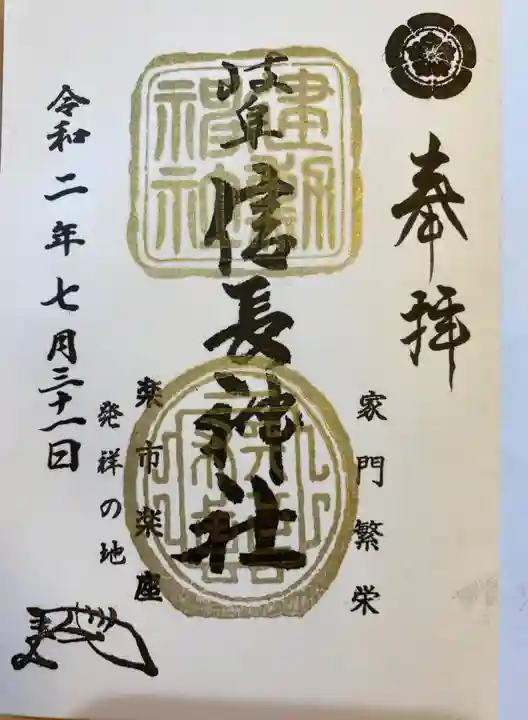 奉拝
家門繁栄
岐阜信長神社
楽市楽座
発祥の地
令和二年七月三十一日